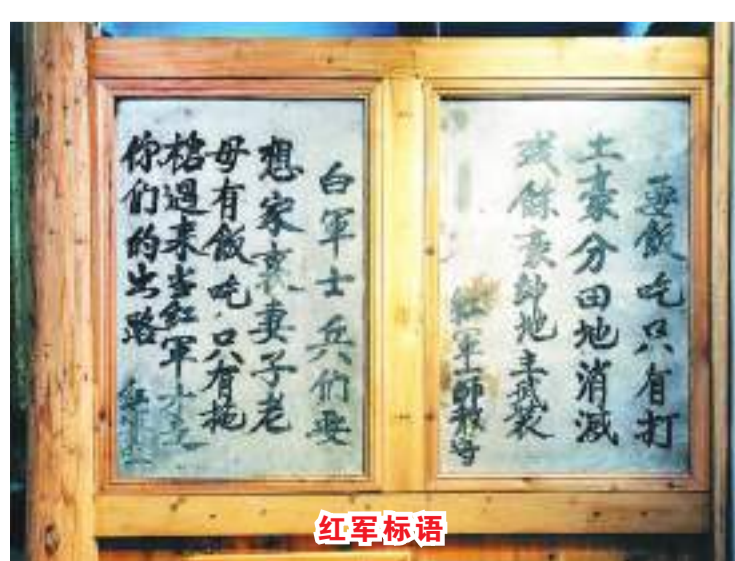 要飯吃只有打
土豪分田地消滅
残餘豪紳地主武装
紅軍一師
白軍士兵们要
想家裏妻子老
母有飯吃只有拖
槍過来当紅軍才是
你们的出路
红军标语